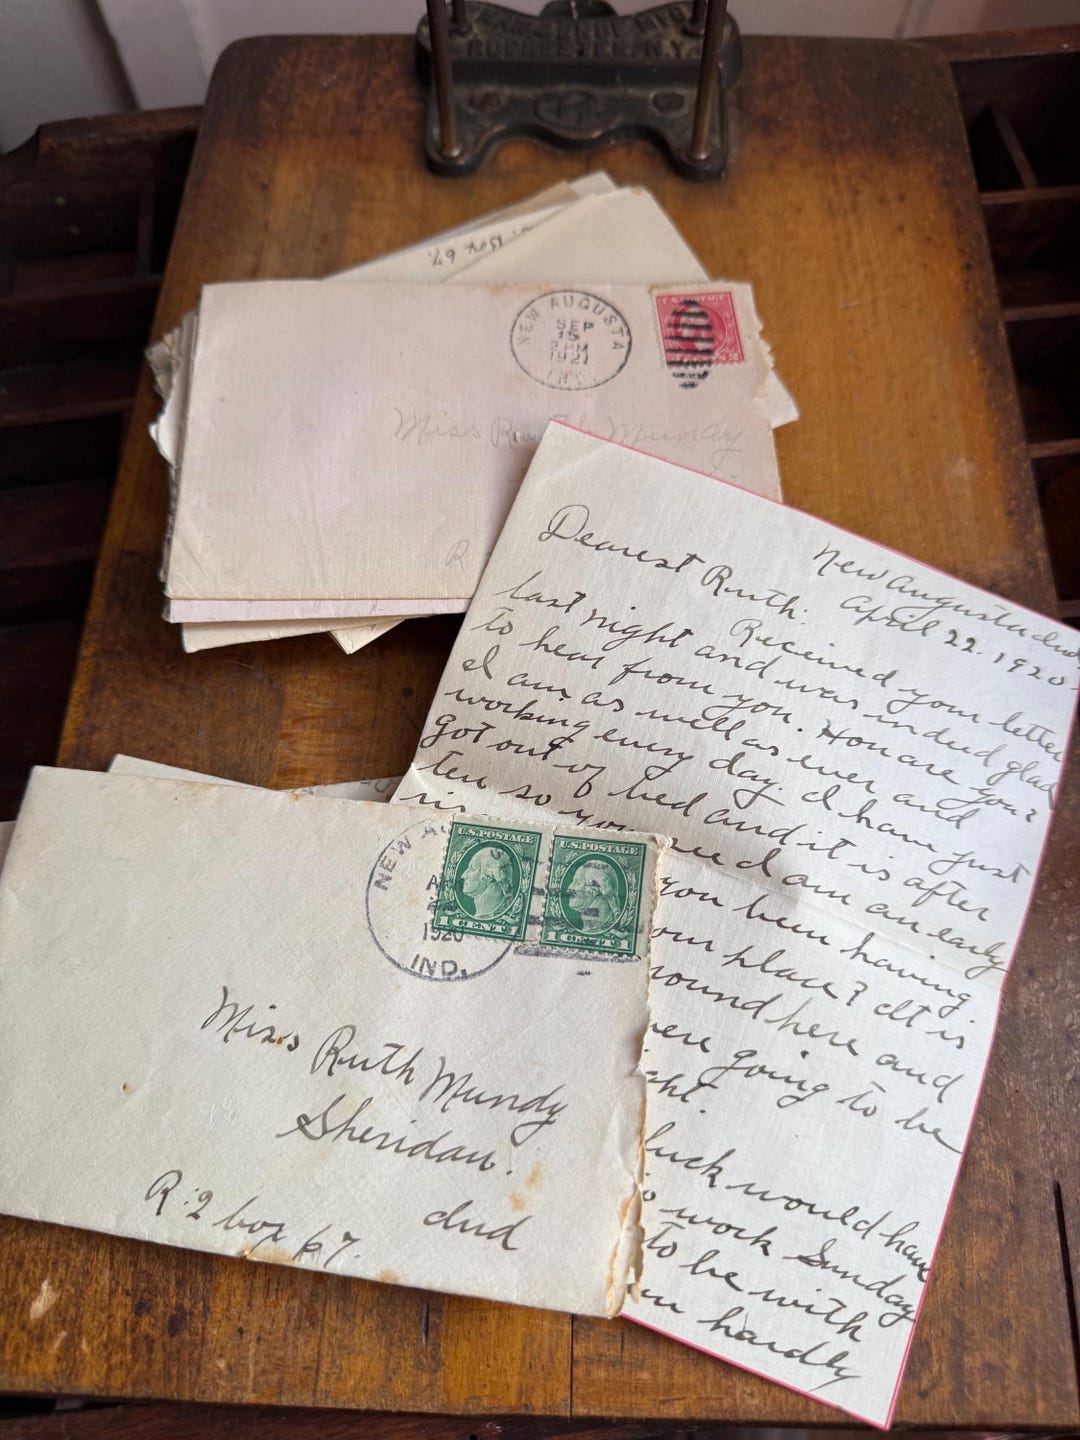 ROCHESTER, N.Y.
Box 67.
NEW AUGUSTA
SEP
15
2 PM
1921
IND.
U.S. POSTAGE
2
Miss Ruth Mundy
R
New Augusta Ind.
April 22. 1920.
Dearest Ruth:
Received your letter
last night and was indeed glad
to hear from you. How are you?
I am as well as ever and
working every day. I have just
got out of bed and it is after
ten so you see I am an early
ris
you been having
our place? It is
round here and
ere going to be
ght.
luck would have
to work Sunday
to be with
hardly
NEW AU
1920
IND.
U.S. POSTAGE
1 CENT 1
U.S. POSTAGE
1 CENT 1
Miss Ruth Mundy
Sheridan.
Ind
R.2 box 67.